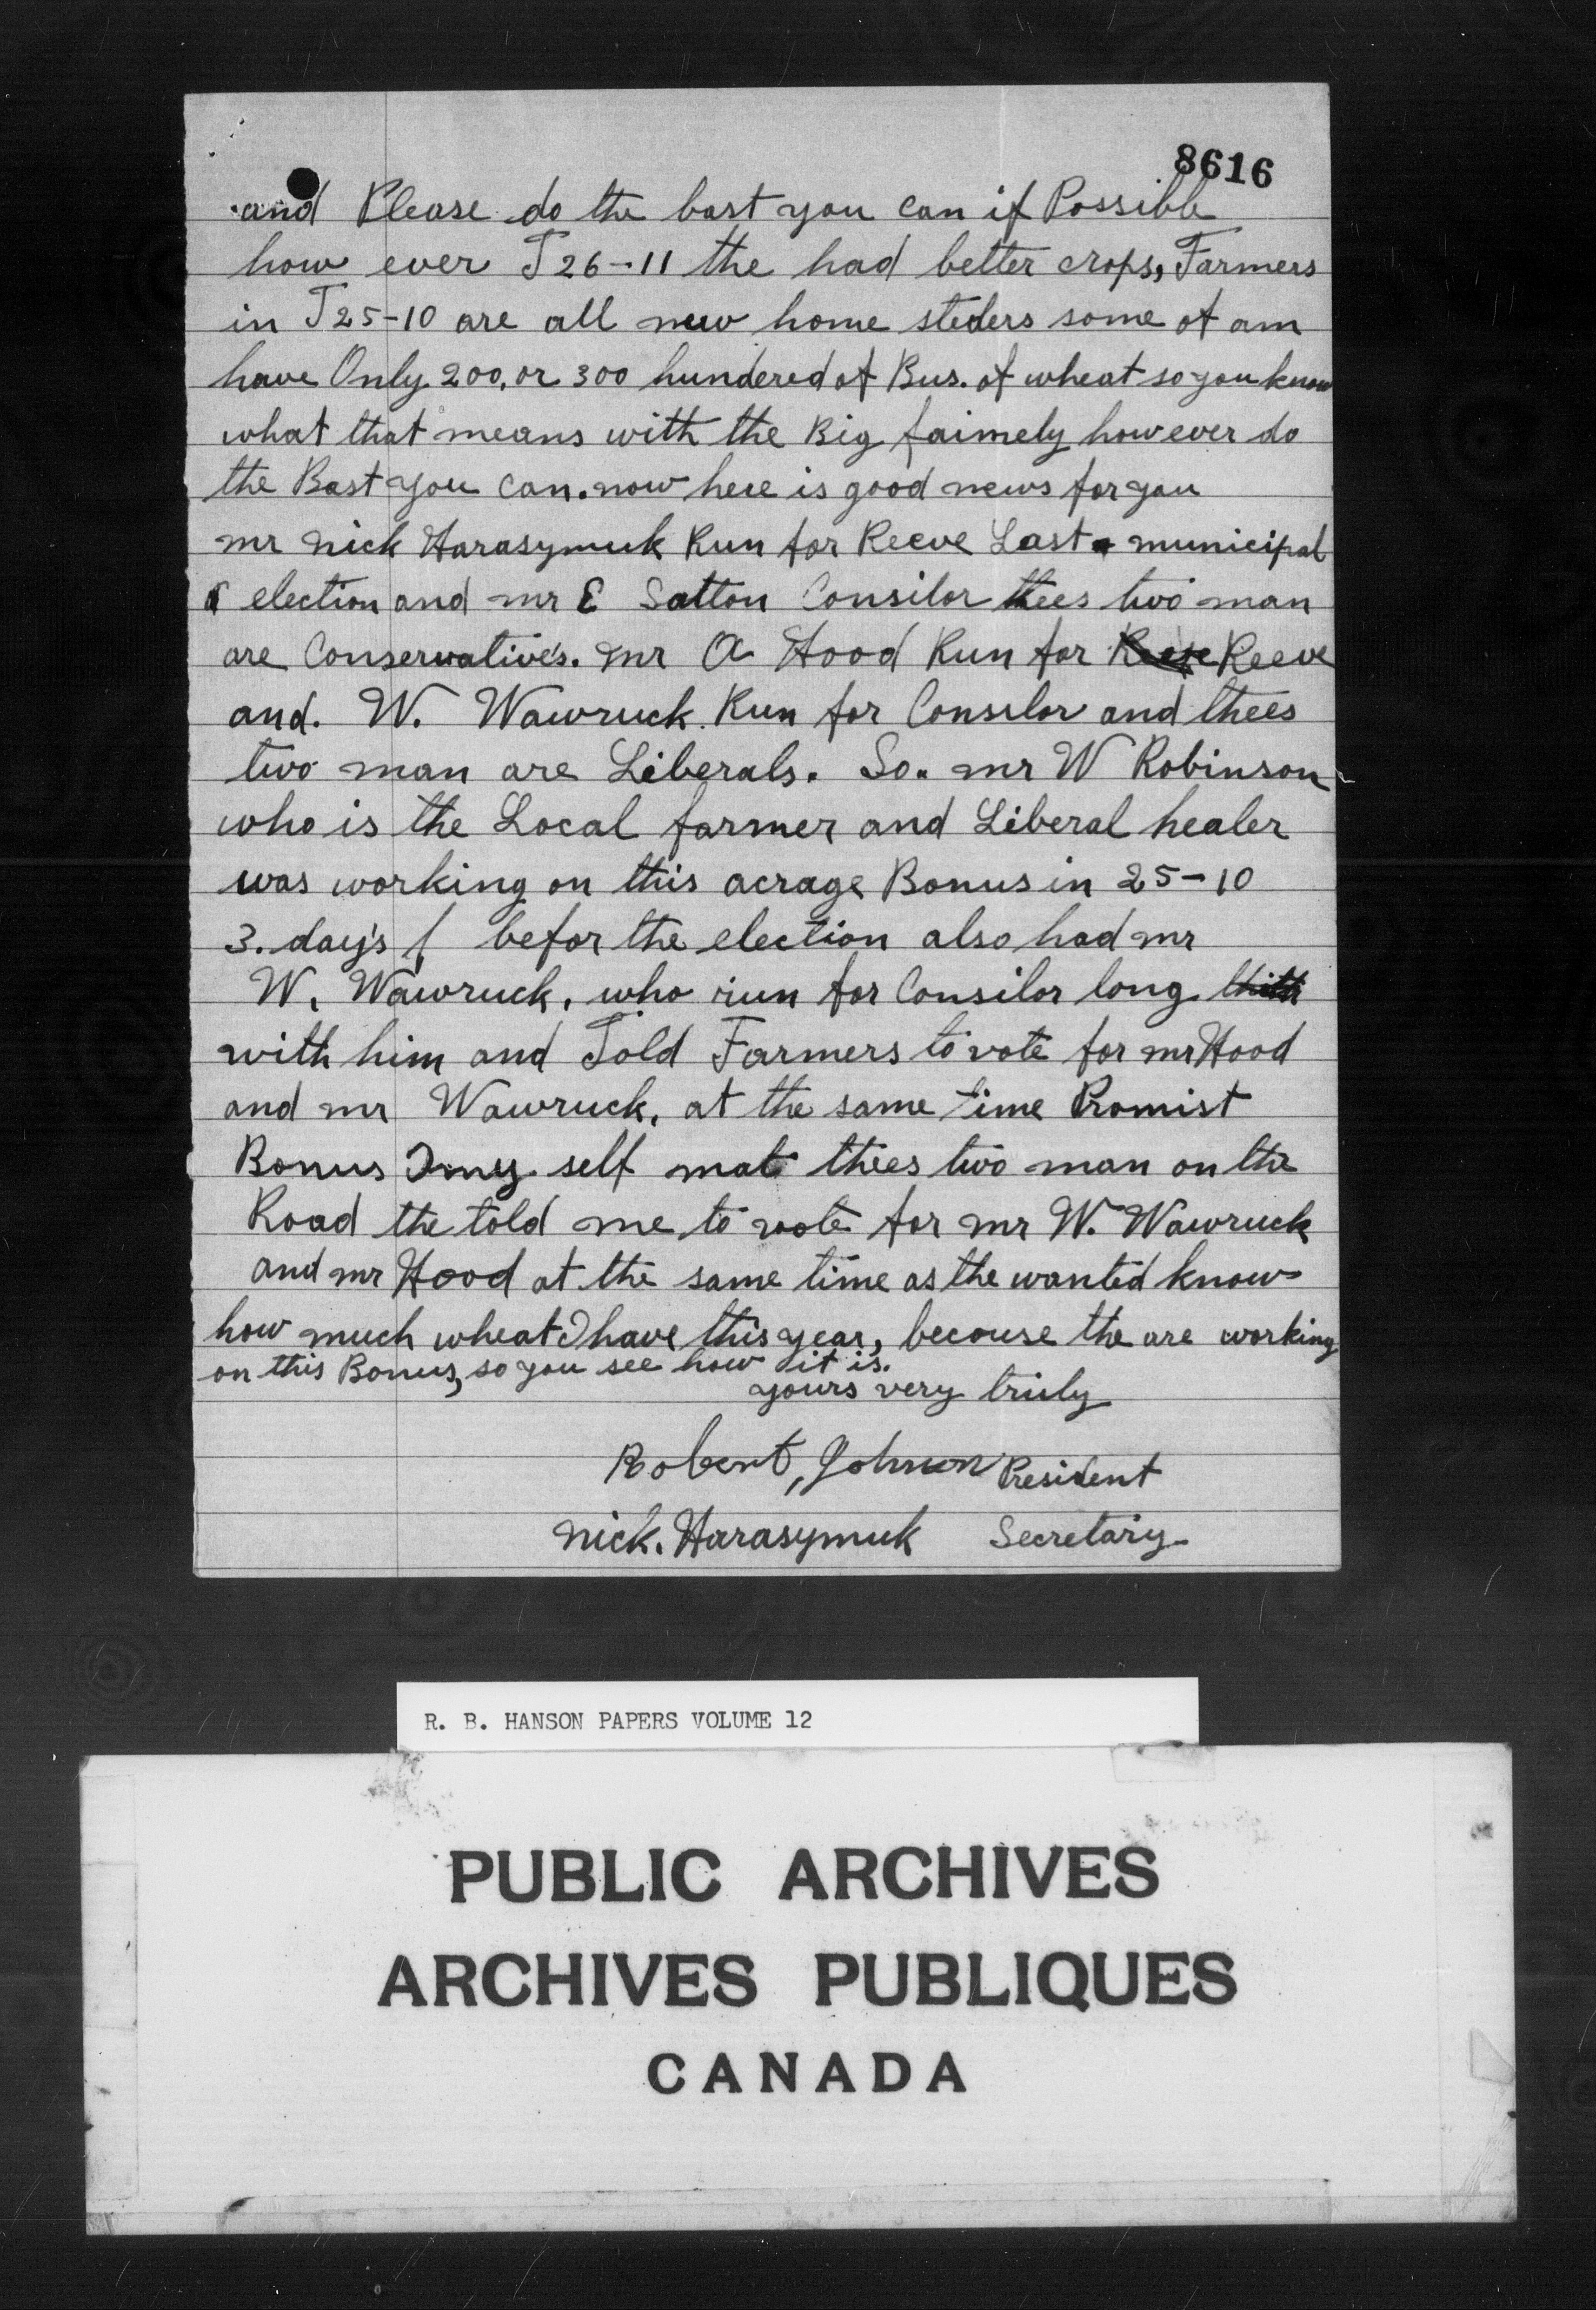 8616
and Please do the bast you can if Possible
how ever T26-11 the had better crops, Farmers
in T25-10 are all new home steders some of am
have Only 200, or 300 hundered of Bus. of wheat so you know
what that means with the Big faimely however do
the Bast you can. now here is good news for you
mr nick Harasymuk Run for Reeve Last municipal
election and mr E Satton Consilor thees two man
are Conservative's. mr A Hood Run for Reeve Reeve
and. W. Wawruck. Run for Conselor and thees
two man are Liberals. So. mr W Robinson
who is the Local farmer and Liberal healer
was working on this acrage Bonus in 25-10
3. day's befor the election also had mr
W. Wawruck, who run for Consilor long
with him and Told Farmers to vote for mr Hood
and mr Wawruck, at the same time Promist
Bonus I my self mat thees two man on the
Road the told me to vote for mr W. Wawruck
and mr Hood at the same time as the wanted know
how much wheat I have this year, becouse the are working
on this Bonus, so you see how it is.
yours very truly
Robert, Johnson President
nick. Harasymuk Secretary
R. B. HANSON PAPERS VOLUME 12
PUBLIC ARCHIVES
ARCHIVES PUBLIQUES
CANADA